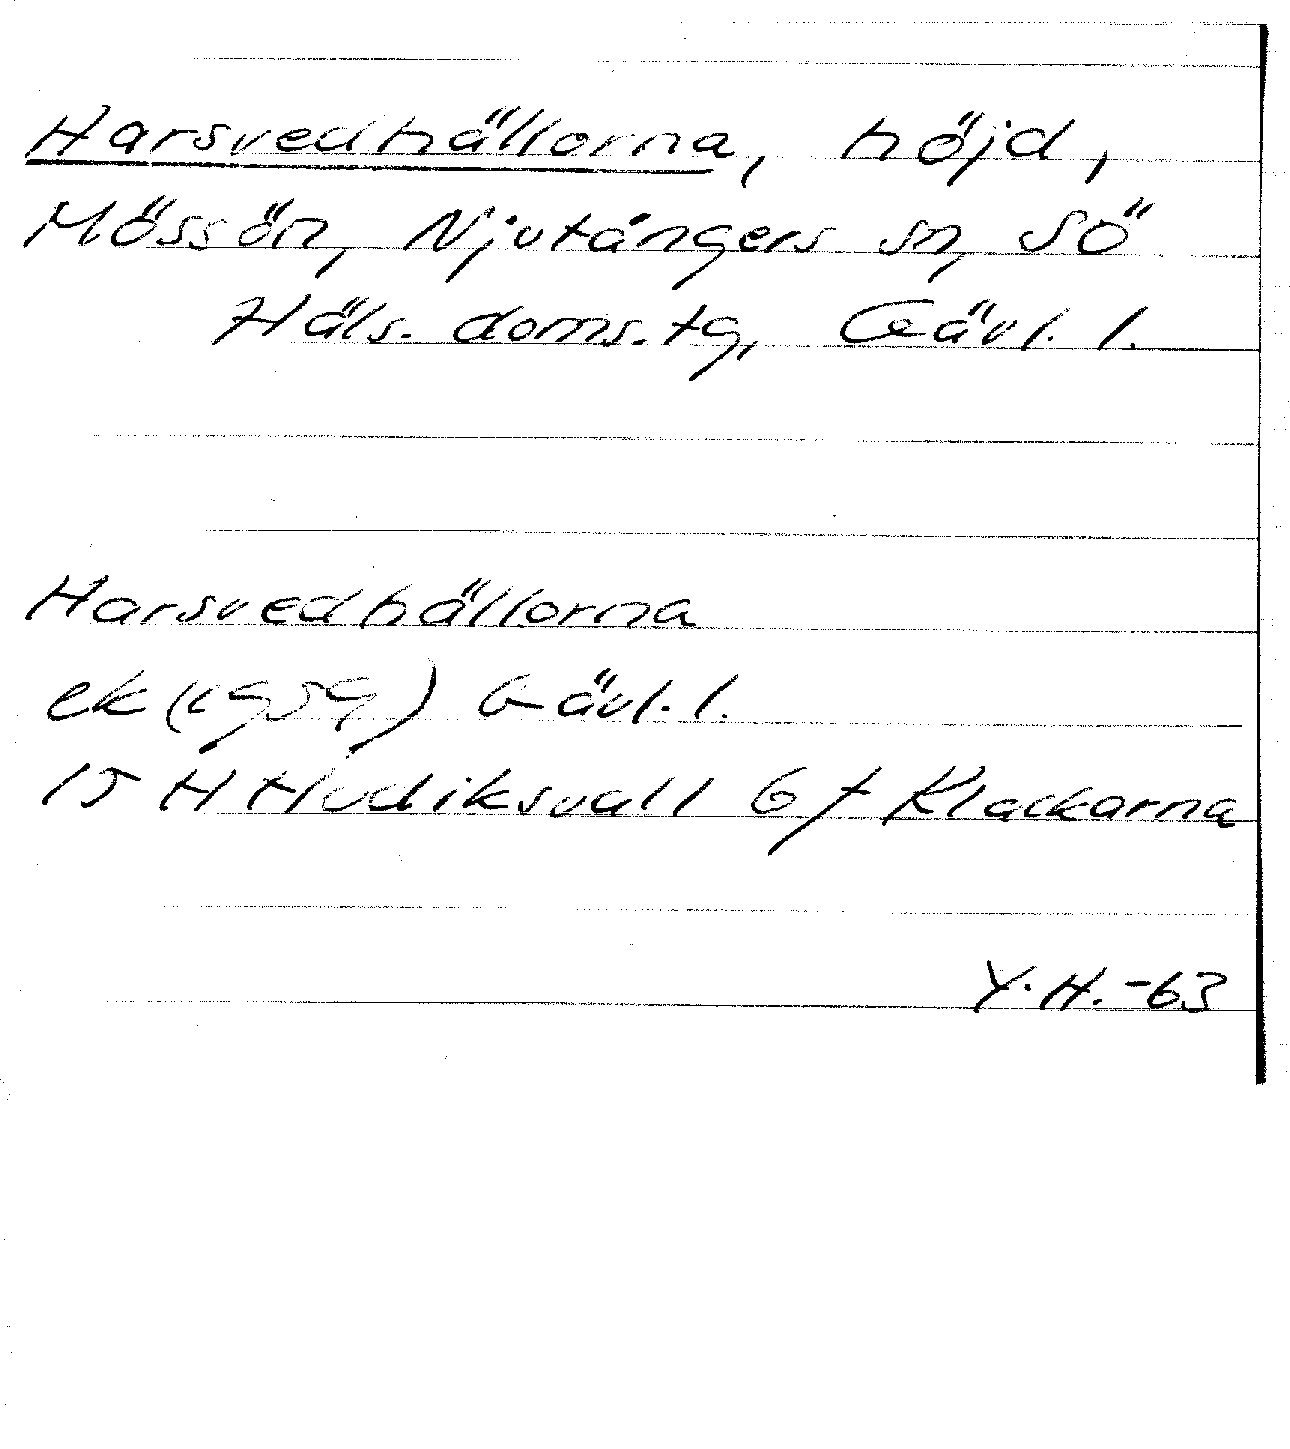 Harsvedhällorna, höjd,
Mössön, Njutångers sn, Sö
Häls. doms. tg, Gävl. l.
Harsvedhällorna
ek (1959) Gävl. l.
15 H Hudiksvall 6 f Klackarna
Y. H. -63